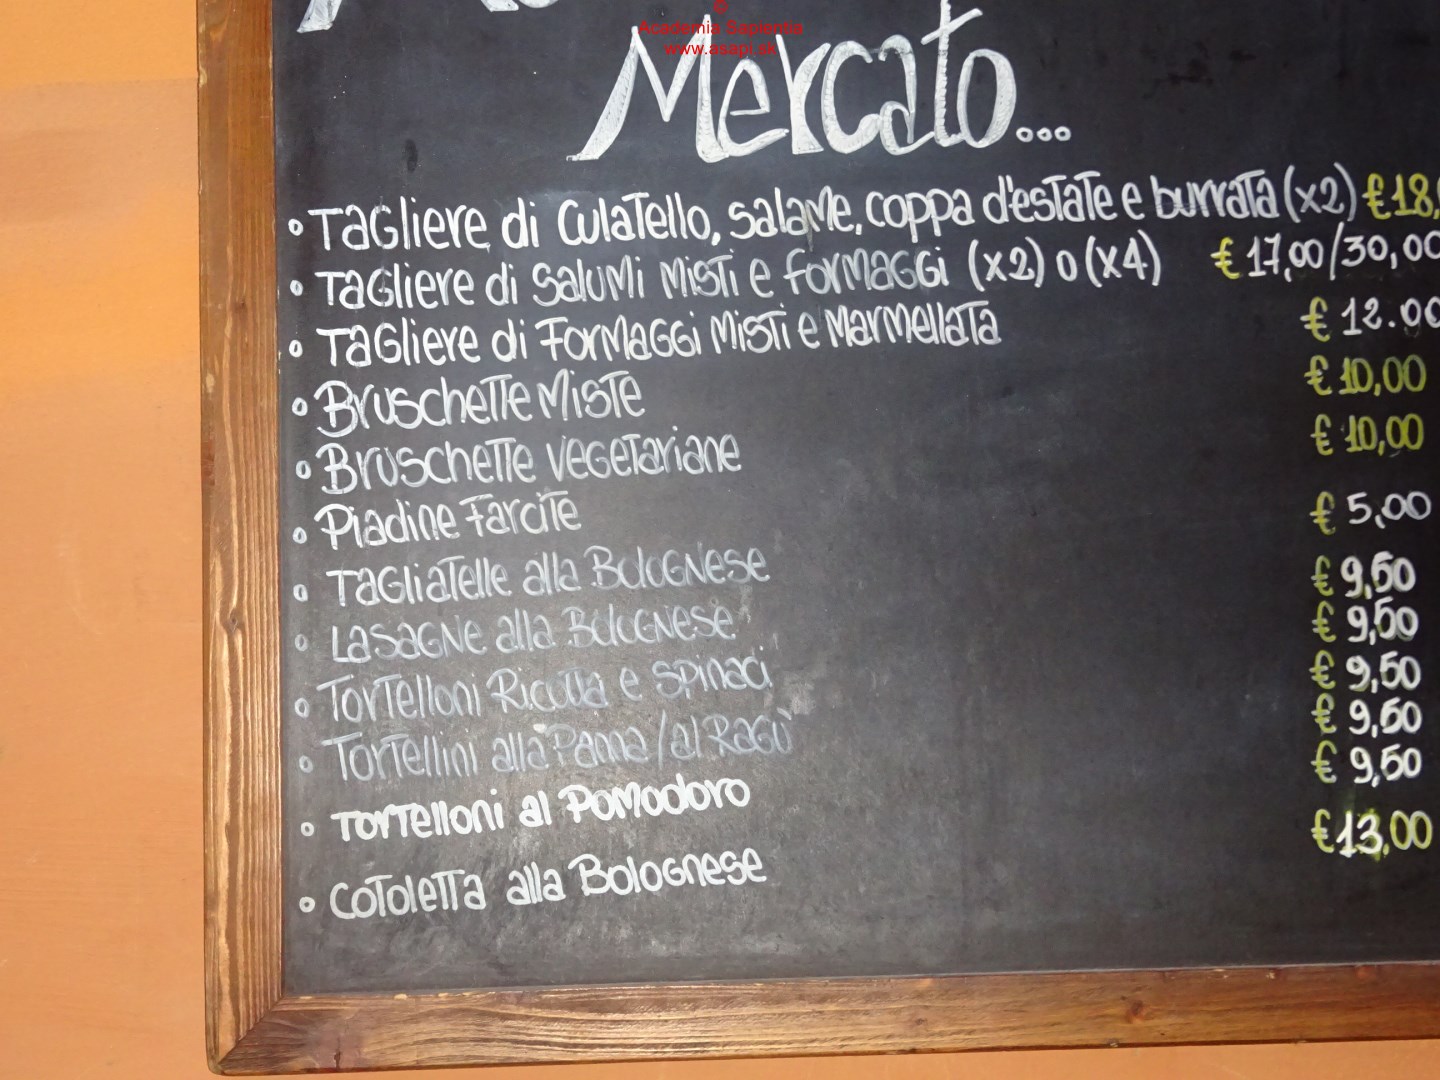 ©
Academia Sapientia
www.asapi.sk
Mercato...
Tagliere di Culatello, salame, coppa d'estate e burrata (x2) €18,
Tagliere di Salumi Misti e formaggi (x2) o (x4) € 17,00/30,00
Tagliere di Formaggi Misti e Marmellata € 12.00
Bruschette Miste € 10,00
Bruschette vegetariane € 10,00
Piadine Farcite € 5,00
Tagliatelle alla Bolognese € 9,50
Lasagne alla Bolognese € 9,50
Tortelloni Ricotta e spinaci € 9,50
Tortellini alla Panna/al Ragù € 9,50
Tortelloni al Pomodoro € 9,50
Cotoletta alla Bolognese €13,00